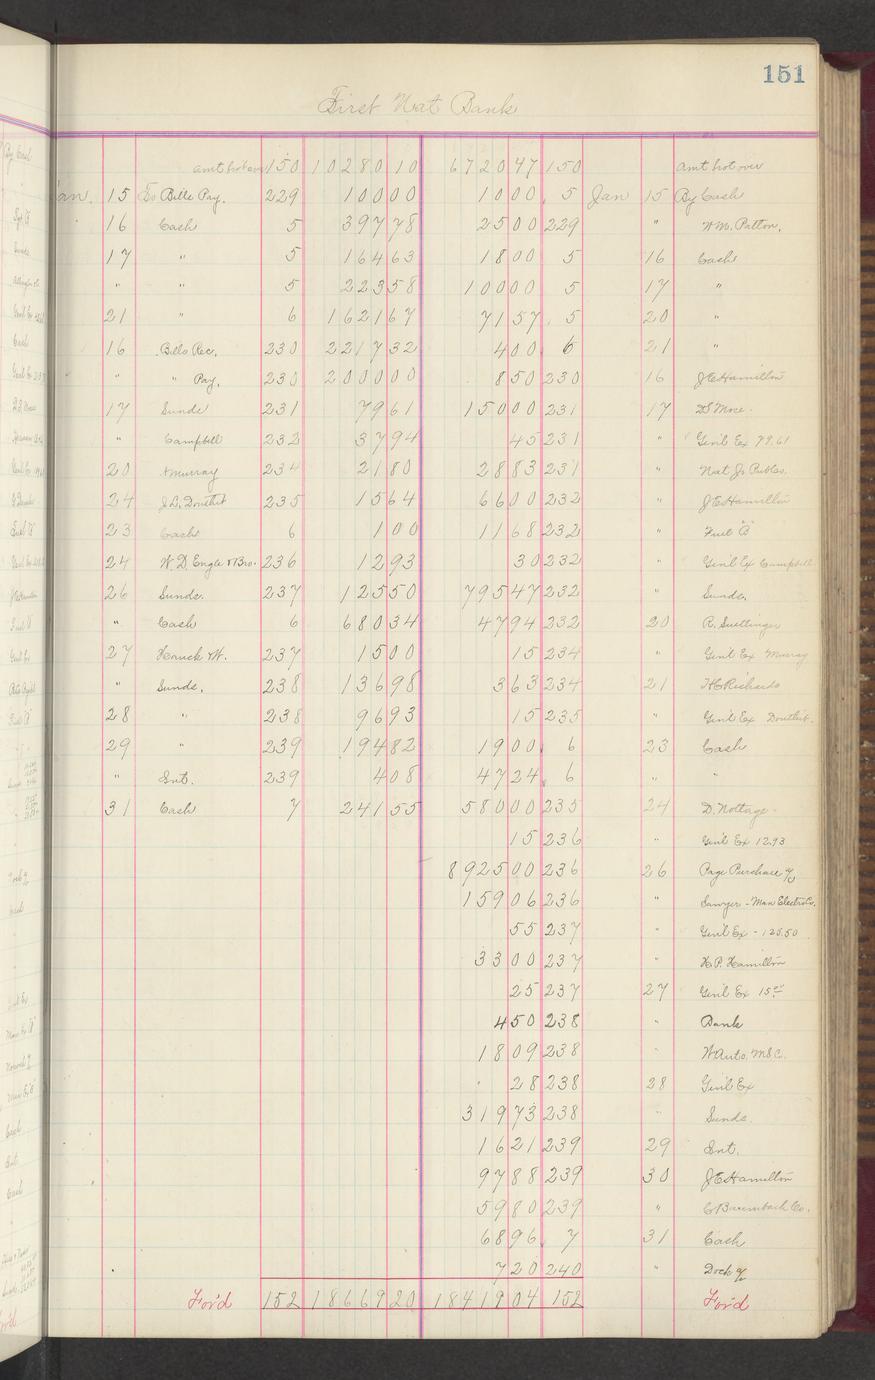 151
First Nat Bank
amt brot over 150 10280 10 6720 47 150 amt brot over
Jan. 15 To Bills Pay. 229 100 00 10 00 5 Jan 15 By Cash
16 Cash 5 397 78 25 00 229 " W.M. Patton.
17 " 5 164 63 18 00 5 16 Cash
" " 5 223 58 100 00 5 17 "
21 " 6 1621 67 71 57 5 20 "
16 Bills Rec. 230 2217 32 4 00 6 21 "
" " Pay. 230 2000 00 8 50 230 16 J E Hamilton
17 Sunds 231 79 61 150 00 231 17 D S More.
" Campbell 232 37 94 45 231 " Gen'l Ex 79.61
20 Murray 234 21 80 28 83 231 " Nat Jr Pubes.
24 J. L. Douthit 235 15 64 66 00 232 " J E Hamilton
23 Cash 6 1 00 11 68 232 " Fuel "B"
24 W. D. Engle & Bro. 236 12 93 30 232 " Gen'l Ex Campbell
26 Sunds. 237 125 50 795 47 232 " Sunds.
" Cash 6 680 34 47 94 232 20 R. Suettinger
27 Houck & H. 237 15 00 15 234 " Gen'l Ex Murray
" Sunds. 238 136 98 3 63 234 21 H C Richards
28 " 238 96 93 15 235 " Gen'l Ex Douthit.
29 " 239 194 82 19 00 6 23 Cash
" Int. 239 4 08 47 24 6 " "
31 Cash 7 241 55 580 00 235 24 D. Nottage.
15 236 " Gen'l Ex 12.93
8925 00 236 26 Page Purchase %
159 06 236 " Sawyer - Man Electros.
55 237 " Gen'l Ex - 125.50
33 00 237 " H. P. Hamilton
25 237 27 Gen'l Ex 15.00
4 50 238 " Bank
18 09 238 " W Auto. M & C.
28 238 28 Gen'l Ex
319 73 238 " Sunds.
16 21 239 29 Int.
97 88 239 30 J E Hamilton
59 80 239 " C Baumbach Co.
68 96 7 31 Cash
7 20 240 " Dock %
For'd 152 18669 20 18419 04 152 For'd